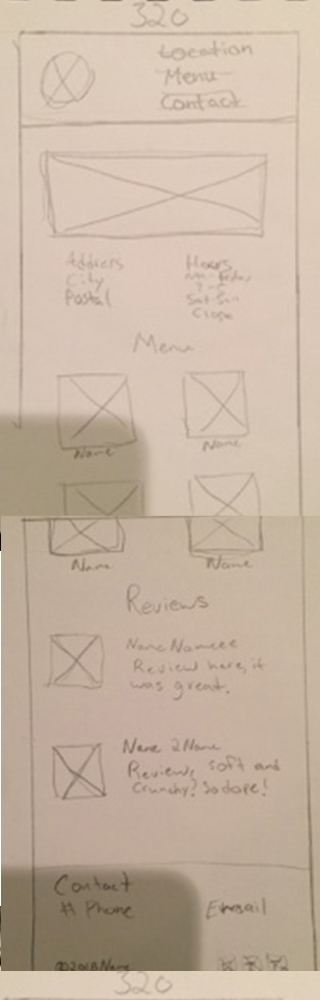 320
Location
Menu
Contact
Address
City
Postal
Hours
Mon-Friday
7-5
Sat-Sun
Close
Menu
Name
Name
Name
Name
Reviews
Name Nameee
Review here, it
was great.
Name 2Name
Review, soft and
Crunchy? So dope!
Contact
# Phone
Email
Name
320